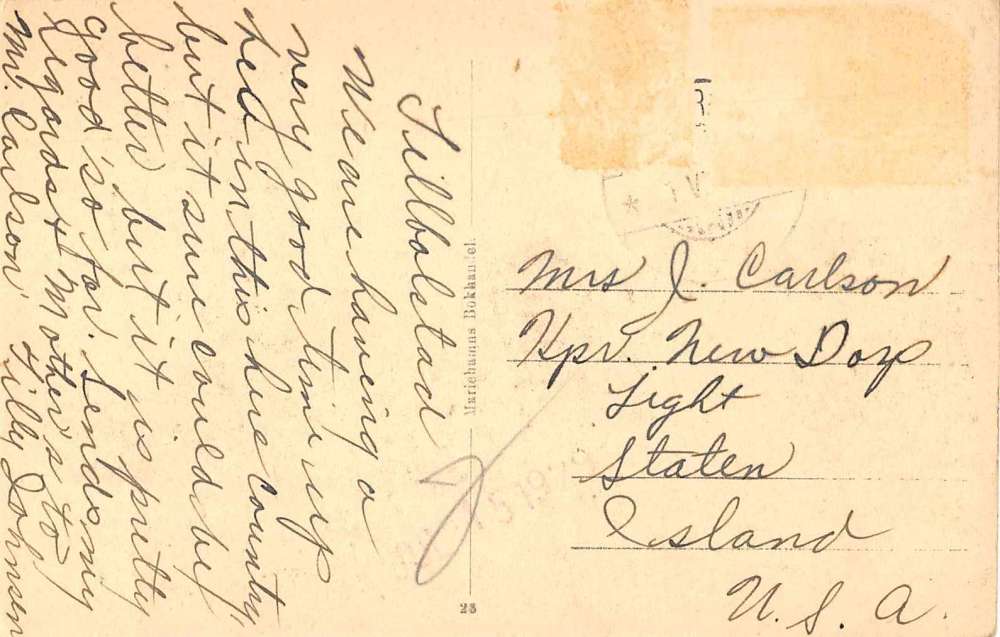 Tillbalstad
We are having a
very good time up
heir in this hire country,
but it sure could be
better but it is pretty
good so far. Sends my
Regards + Mother's to
Mr. Carlson Tilly Johnsen
Mariehamns Bokhandel.
23
Mrs J. Carlson
Kpr. New Dorp
Light
Staten
Island
U. S. A.